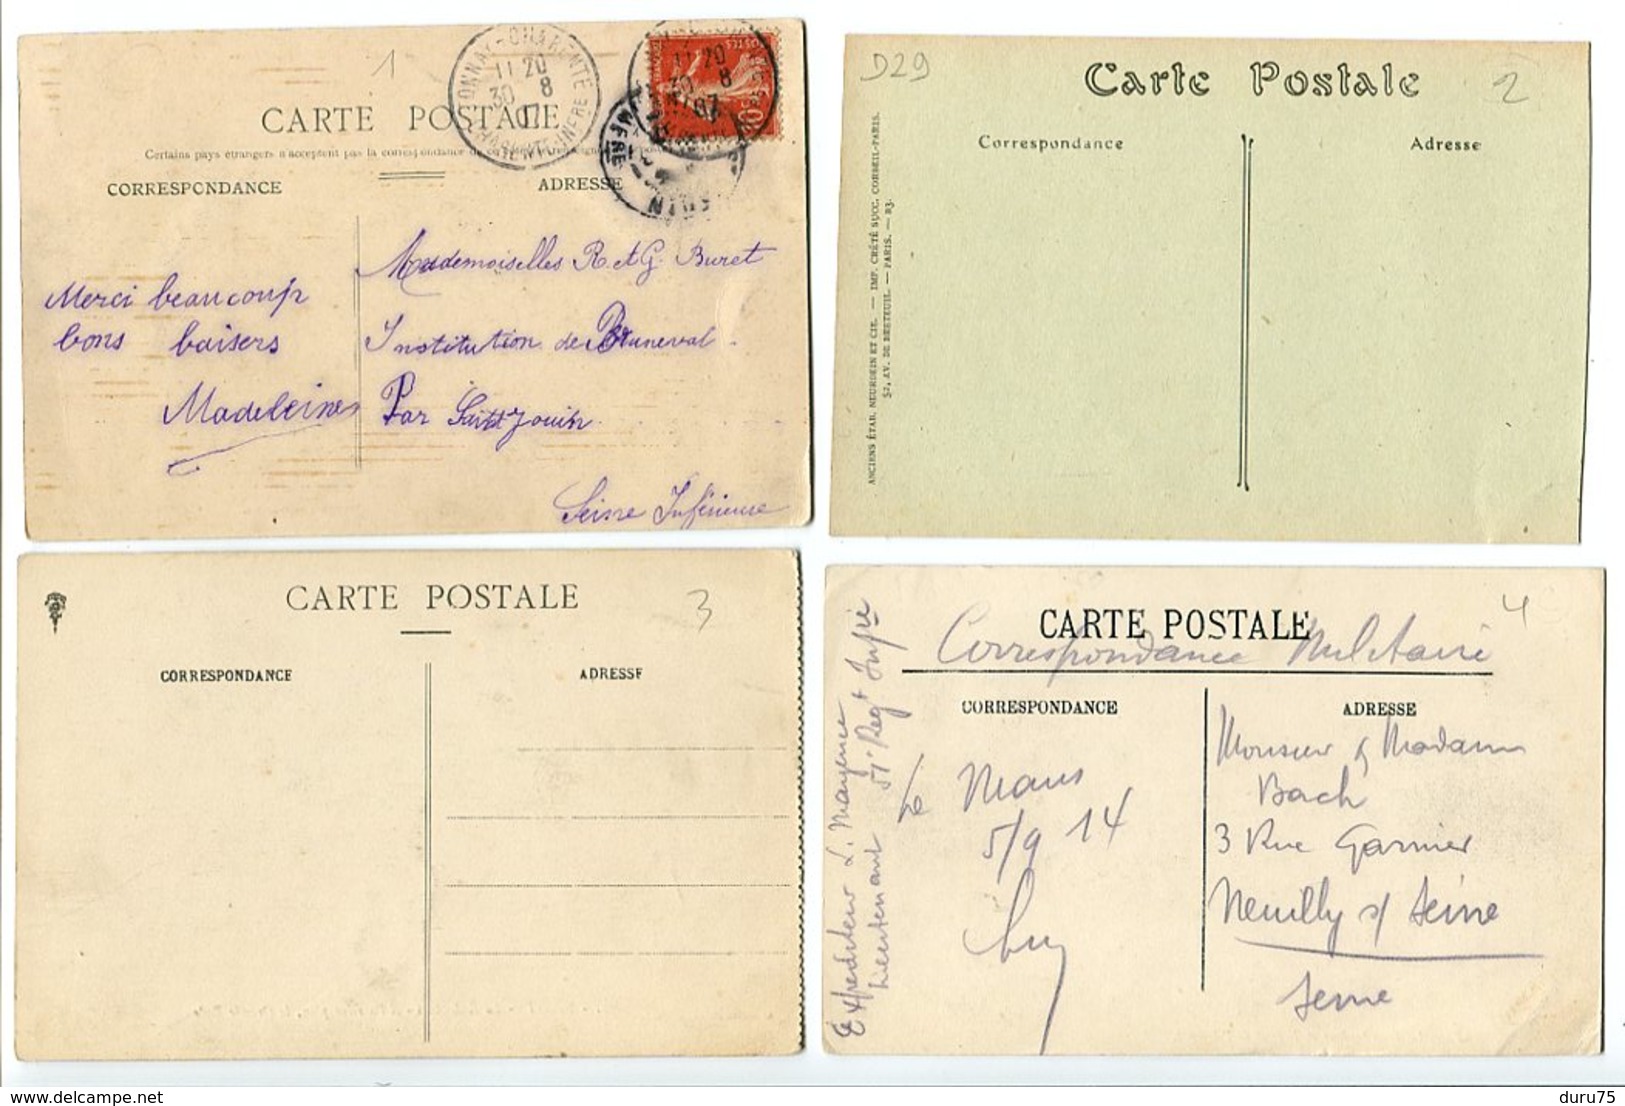 1
TONNAY-CHARENTE
11 20
30 8
07
CARTE POSTALE
Certains pays étrangers n'acceptent pas la correspondance de ce
CORRESPONDANCE
ADRESSE
Merci beaucoup
bons baisers
Madeleine
Mademoiselles R. et G. Buret
Institution de Bruneval
Par Saint Jouin
Seine Inférieure
D29
2
Carte Postale
Correspondance
Adresse
ANCIENS ÉTAB. NEURDEIN ET CIE. — IMP. CRÉTÉ SUCC. CORBEIL-PARIS.
52, AV. DE BRETEUIL. — PARIS. — R3.
3
CARTE POSTALE
CORRESPONDANCE
ADRESSE
4
CARTE POSTALE
Correspondance Militaire
CORRESPONDANCE
ADRESSE
Le Mans
5/9 14
Monsieur & Madame
Bach
3 Rue Garnier
Neuilly s/ Seine
Seine
Expediteur L. Mayence
Lieutenant 51e Regt Infie
duru75